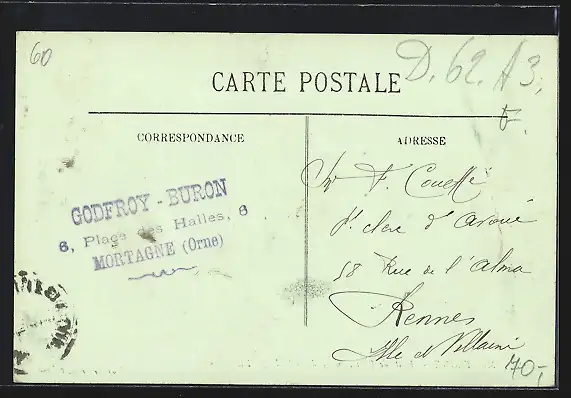 60
D. 62. A3.
CARTE POSTALE
CORRESPONDANCE
ADRESSE
GODFROY - BURON
6, Place des Halles, 6
MORTAGNE (Orne)
Mr F. Coueffé
Pl clerc d'avoué
58 Rue de l'Alma
Rennes
Ille et Villaine
70,-